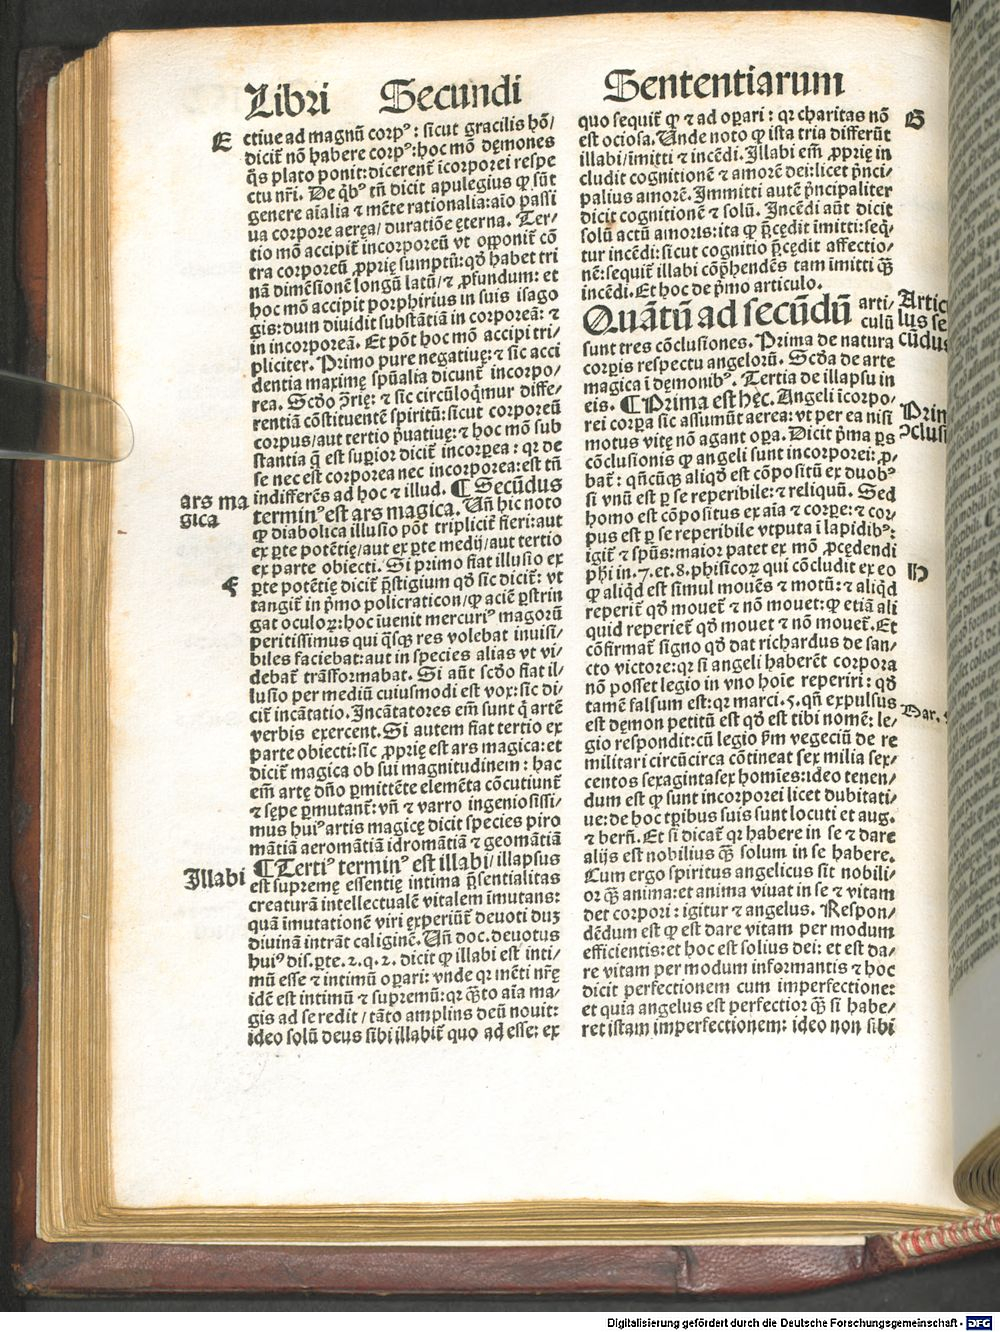 Libri Secundi Sententiarum
E
ctiue ad magnū corpꝰ: sicut gracilis hō/
dicit̄ nō habere corpꝰ: hoc mō dęmones
q̄s plato ponit: dicerent̄ īcorporei respe
ctu nr̄i. De qͥbꝰ tn̄ dicit apulegius ꝙ sūt
genere aīalia ⁊ mēte rationalia: aīo passi
ua corpore aerea/ duratiōe ęterna. Ter/
tio mō accipit̄ incorporeū vt opponit̄ cō
tra corporeū ꝓprię sumptū: qd̄ habet tri
nā dimēsionē longū latū/ ⁊ ꝓfundum: et
hoc mō accipit porphirius in suis isago
gis: dum diuidit substātiā in corporeā: ⁊
in incorporeā. Et pōt hoc mō accipi tri/
pliciter. Primo pure negatiuę: ⁊ sic acci
dentia maximę spūalia dicunt̄ incorpo/
rea. Scd̄o ꝯ̄rię: ⁊ sic circūloqͥmur diffe/
rentiā cōstituentē spiritū: sicut corporeū
corpus/ aut tertio pͥuatiuę: ⁊ hoc mō sub
stantia q̄ est suꝑior dicit̄ incorꝑea: qꝛ de
se nec est corporea nec incorporea: est tn̄
indifferēs ad hoc ⁊ illud. ¶ Secūdus
ars ma
gica
terminꝰ est ars magica. Uñ hic noto
ꝙ diabolica illusio pōt triplicit̄ fieri: aut
ex ꝑte potētię/ aut ex ꝑte medij/ aut tertio
ex parte obiecti. Si primo fiat illusio ex
F
ꝑte potētię dicit̄ p̄stigium qd̄ sic dicit̄: vt
tangit̄ in pͥmo policraticon/ ꝙ aciē ꝑstrin
gat oculoꝝ: hoc īuenit mercuriꝰ magorū
peritissimus qui qͣsqꝫ res volebat inuisi/
biles faciebat: aut in species alias vt vi/
debat̄ trāsformabat. Si aūt scd̄o fiat il/
lusio per mediū cuiusmodi est vox: sic di/
cit̄ incātatio. Incātatores em̄ sunt q̄ artē
verbis exercent. Si autem fiat tertio ex
parte obiecti: sic ꝓprię est ars magica: et
dicit̄ magica ob sui magnitudinem: hac
em̄ artę dn̄o ꝑmittēte elemēta cōcutiunt̄
⁊ sępe ꝑmutant̄: vn̄ ⁊ varro ingeniosissi/
mus huiꝰ artis magicę dicit species piro
mātiā aeromātiā idromātiā ⁊ geomātiā
Illabi
¶ Tertiꝰ terminꝰ est illabi/ illapsus
est supremę essentię intima p̄sentialitas
creaturā intellectualē vitalem īmutans:
quā īmutationē viri experiūt̄ deuoti duꝫ
diuinā intrāt caliginē. Uñ doc. deuotus
huiꝰ dis. ꝑte. 2. q. 2. dicit ꝙ illabi est inti/
mū esse ⁊ intimū oꝑari: vnde qꝛ mēti nr̄ę
idē est intimū ⁊ supremū: qꝛ q̄̄to aīa ma/
gis ad se redit/ tāto amplius deū nouit:
ideo solū deus sibi illabit̄ quo ad esse: ex
quo sequit̄ ꝙ ⁊ ad oꝑari: qꝛ charitas nō
G
est ociosa. Unde noto ꝙ ista tria differūt
illabi/ īmitti ⁊ incēdi. Illabi em̄ ꝓprię in
cludit cognitionē ⁊ amorē dei: licet pͥnci/
palius amorē. Immitti autē pͥncipaliter
dicit cognitionē ⁊ solū. Incēdi aūt dicit
solū actū amoris: ita ꝙ p̄cędit imitti: seq̄/
tur incēdi: sicut cognitio p̄cędit affectio/
nē: sequit̄ illabi cōp̄hendēs tam īmitti qͣ̄
incēdi. Et hoc de pͥmo articulo.
Quātū ad secūdū arti/
culū
Artic
lus se
cūdus
sunt tres cōclusiones. Prima de natura
corꝑis respectu angelorū. Scd̄a de arte
magica ī dęmonibꝰ. Tertia de illapsu in
eis. ¶ Prima est hęc. Angeli īcorpo/
Prim
ↄclusi
rei corꝑa sic assumūt aerea: vt per ea nisi
motus vitę nō agant oꝑa. Dicit pͥma ꝑs
cōclusionis ꝙ angeli sunt incorporei: ꝓ/
bat̄: qn̄cūqꝫ aliqd̄ est cōpositū ex duobꝰ
si vnū est ꝑ se reperibile: ⁊ reliquū. Sed
homo est cōpositus ex aīa ⁊ corꝑe: ⁊ cor/
pus est ꝑ se reperibile vtputa ī lapidibꝰ:
igit̄ ⁊ spūs: maior patet ex mō ꝓcędendi
H
phī in. 7. et. 8. phisicoꝝ qui cōcludit ex eo
ꝙ aliqͥd est simul mouēs ⁊ motū: ⁊ aliqͥd
reperit̄ qd̄ mouet̄ ⁊ nō mouet: ꝙ etiā ali
quid reperiet̄ qd̄ mouet ⁊ nō mouet̄. Et
cōfirmat̄ signo qd̄ dat richardus de san/
cto victore: qꝛ si angeli haberēt corpora
nō posset legio in vno hoīe reperiri: qd̄
tamē falsum est: qꝛ marci. 5. qn̄ expulsus
Mar. 5
est dęmon petitū est qd̄ est tibi nomē: le/
gio respondit: cū legio ẜm vegeciū de re
militari circūcirca cōtineat sex milia sex/
centos sexagintasex homīes: ideo tenen/
dum est ꝙ sunt incorporei licet dubitati/
ue: de hoc tꝑibus suis sunt locuti et aug.
⁊ berñ. Et si dicat̄ qꝛ habere in se ⁊ dare
alijs est nobilius qͣ̄ solum in se habere.
Cum ergo spiritus angelicus sit nobili/
or qͣ̄ anima: et anima viuat in se ⁊ vitam
det corpori: igitur ⁊ angelus. Respon/
dēdum est ꝙ est dare vitam per modum
efficientis: et hoc est solius dei: et est da/
re vitam per modum informantis ⁊ hoc
dicit perfectionem cum imperfectione:
et quia angelus est perfectior qͣ̄ si habe/
ret istam imperfectionem: ideo non sibi
Digitalisierung gefördert durch die Deutsche Forschungsgemeinschaft - DFG